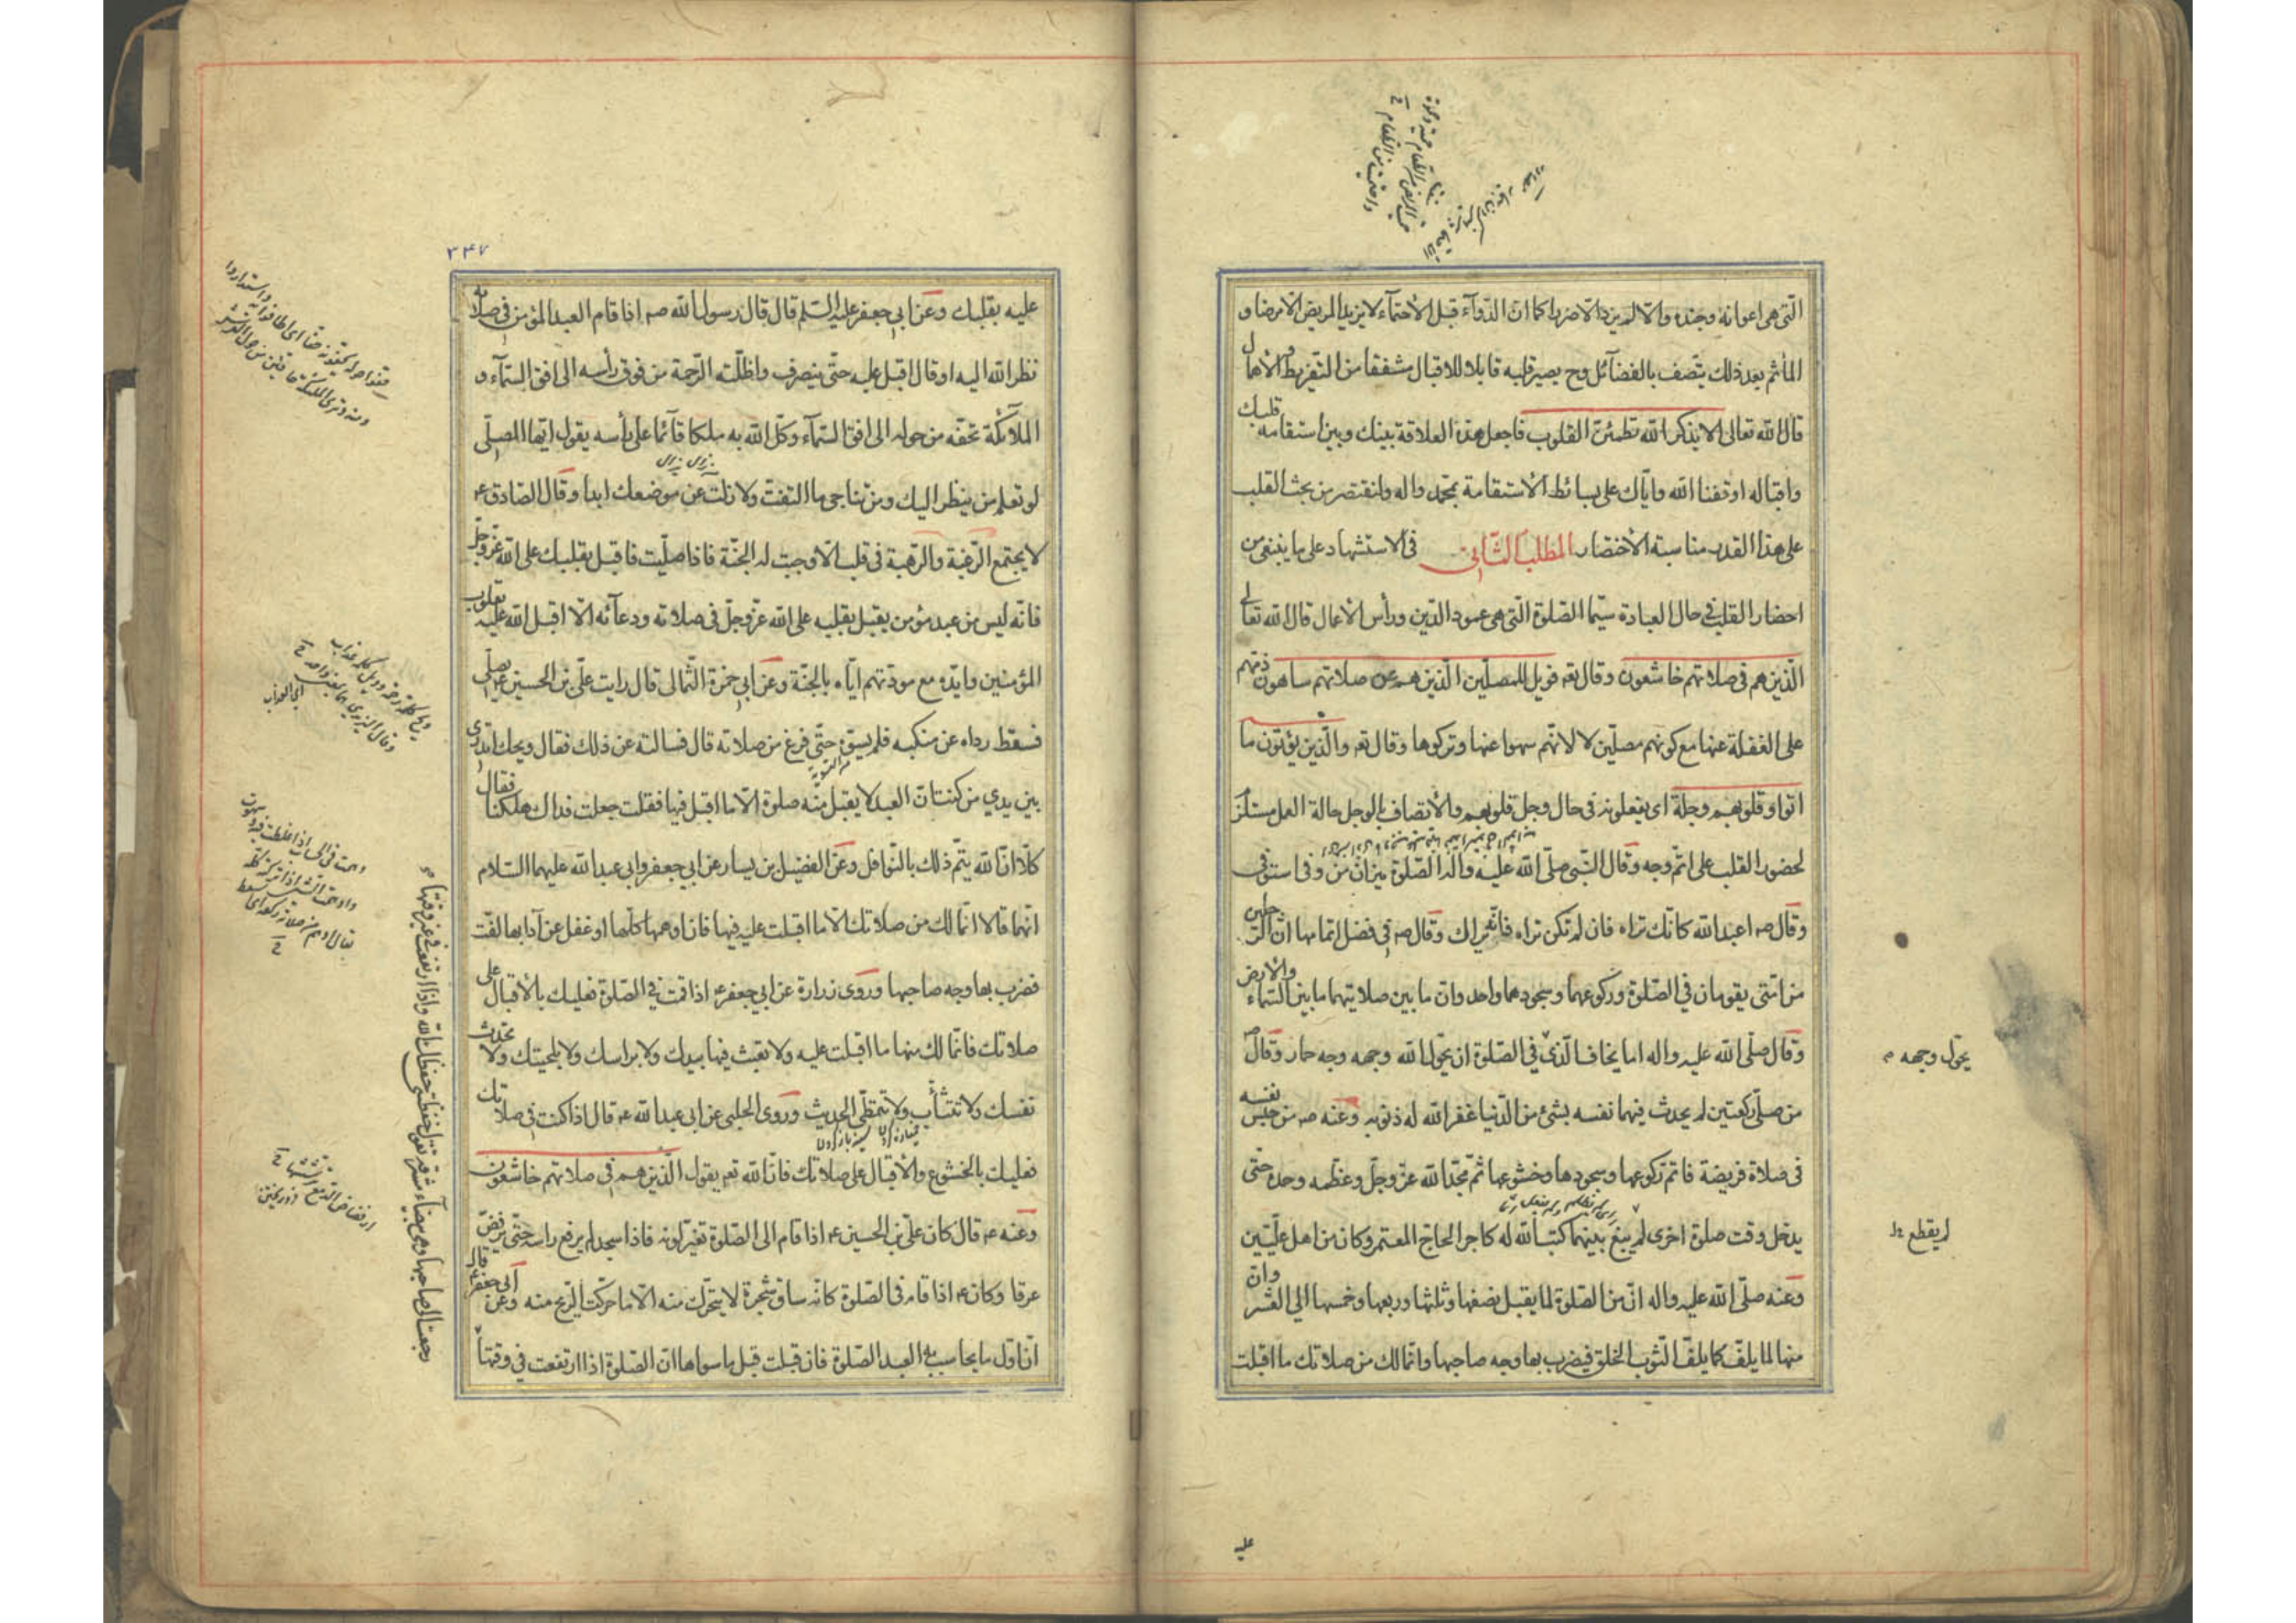 التى هى اعوانه وجنده والا لم يزده الا ضررا كما ان الدوآء قبل الأحتمآء لا يزيد المريض الا مرضا و
المأثم بعد ذلك يتصف بالفضآئل وح يصير قلبه قابلا للاقبال مشفقا من التفريط والأهمال
قال الله تعالى الا بذكر الله تطمئن القلوب فاجعل هذه العلاقة بينك وبين استقامة قلبك
واقباله اوقفنا الله واياك على بسائط الأستقامة بمحمد واله ولنقتصر من بحث القلب
على هذا القدر مناسبة الأختصار المطلب الثانى فى الاستشهاد على ما ينبغى من
احضار القلب فى حال العبادة سيما الصلوة التى هى عمود الدين ورأس الأعمال قال الله تعالى
الذين هم فى صلاتهم خاشعون وقال تعه فويل للمصلين الذين هم عن صلاتهم ساهون ذمهم
على الغفلة عنها مع كونهم مصلين لا لانهم سهوا عنها وتركوها وقال تعه والذين يؤتون ما
اتوا وقلوبهم وجلة اى يفعلونه فى حال وجل قلوبهم والأتصاف بالوجل حالة العمل مستلزم
لحضور القلب على اتم وجه وقال النبى صلى الله عليه واله الصلوة ميزان من وفى استوفى
وقال صه اعبد الله كانك تراه فان لم تكن تراه فانه يراك وقال صه فى فضل اتمامها ان الرجلين
من امتى يقومان فى الصلوة وركوعهما وسجودهما واحد وان ما بين صلاتيهما ما بين السماء والارض
وقال صلى الله عليه واله اما يخاف الذى فى الصلوة ان يحول الله وجهه وجه حمار وقال صه
يحول وجهه
من صلى ركعتين لم يحدث فيهما نفسه بشئ من الدنيا غفر الله له ذنوبه وعنه صه من حبس نفسه
فى صلاة فريضة فاتم ركوعها وسجودها وخشوعها ثم مجد الله عز وجل وعظمه وحده حتى
يدخل وقت صلوة اخرى لم يبغ بينهما كتب الله له كاجر الحاج المعتمر وكان من اهل عليين
وعنه صلى الله عليه واله ان من الصلوة لما يقبل نصفها وثلثها وربعها وخمسها الى العشر وان
منها لما يلف كما يلف الثوب الخلق فيضرب بها وجه صاحبها وانما لك من صلاتك ما اقبلت
عليه
٣٤٧
عليه بقلبك وعن ابى جعفر عليه السلم قال قال رسول الله صه اذا قام العبد المؤمن فى صلاته
نظر الله اليه او قال اقبل عليه حتى ينصرف واظلته الرحمة من فوق رأسه الى افق السمآء و
الملآئكة تحفه من حوله الى افق السمآء وكل الله به ملكا قآئما على رأسه يقول ايها المصلى
لو تعلم من ينظر اليك ومن تناجى ما التفت ولا زلت عن موضعك ابدا وقال الصادق ع
لا يجتمع الرغبة والرهبة فى قلب الا وجبت له الجنة فاذا صليت فاقبل بقلبك على الله عز وجل
فانه ليس من عبد مؤمن يقبل بقلبه على الله عز وجل فى صلاته ودعآئه الا اقبل الله عليه بقلوب
المؤمنين وايده مع مودتهم اياه بالجنة وعن ابى حمزة الثمالى قال رايت على بن الحسين ع يصلى
فسقط رداه عن منكبه فلم يسوه حتى فرغ من صلاته قال فسالته عن ذلك فقال ويحك اتدرى
بين يدي من كنت ان العبد لا يقبل منه صلوة الا ما اقبل فيها فقلت جعلت فداك هلكنا فقال
كلا ان الله يتم ذلك بالنوافل وعن الفضيل بن يسار عن ابى جعفر وابى عبد الله عليهما السلام
انهما قالا انما لك من صلاتك الا ما اقبلت عليه فيها فان اوهمها كلها او غفل عن آدابها لفت
فضرب بها وجه صاحبها وروى زرارة عن ابى جعفر ع اذا قمت فى الصلوة فعليك بالأقبال على
صلاتك فانما لك منها ما اقبلت عليه ولا تعبث فيها بيدك ولا براسك ولا بلحيتك ولا تحدث
نفسك ولا تتثأب ولا تتمطى الحديث وروى الحلبى عن ابى عبد الله ع قال اذا كنت فى صلاتك
فعليك بالخشوع والأقبال على صلاتك فان الله تعه يقول الذين هم فى صلاتهم خاشعون
وعنه ع قال كان على بن الحسين ع اذا قام الى الصلوة تغير لونه فاذا سجد لم يرفع راسه حتى يرفض
عرقا وكان ع اذا قام فى الصلوة كانه ساق شجرة لا يتحرك منه الا ما حركت الريح منه وعن ابى جعفر ع قال
ان اول ما يحاسب به العبد الصلوة فان قبلت قبل ما سواها ان الصلوة اذا ارتفعت فى وقتها
رجعت الى صاحبها وهى بيضآء مشرقة تقول حفظتنى حفظك الله واذا ارتفعت فى غير وقتها